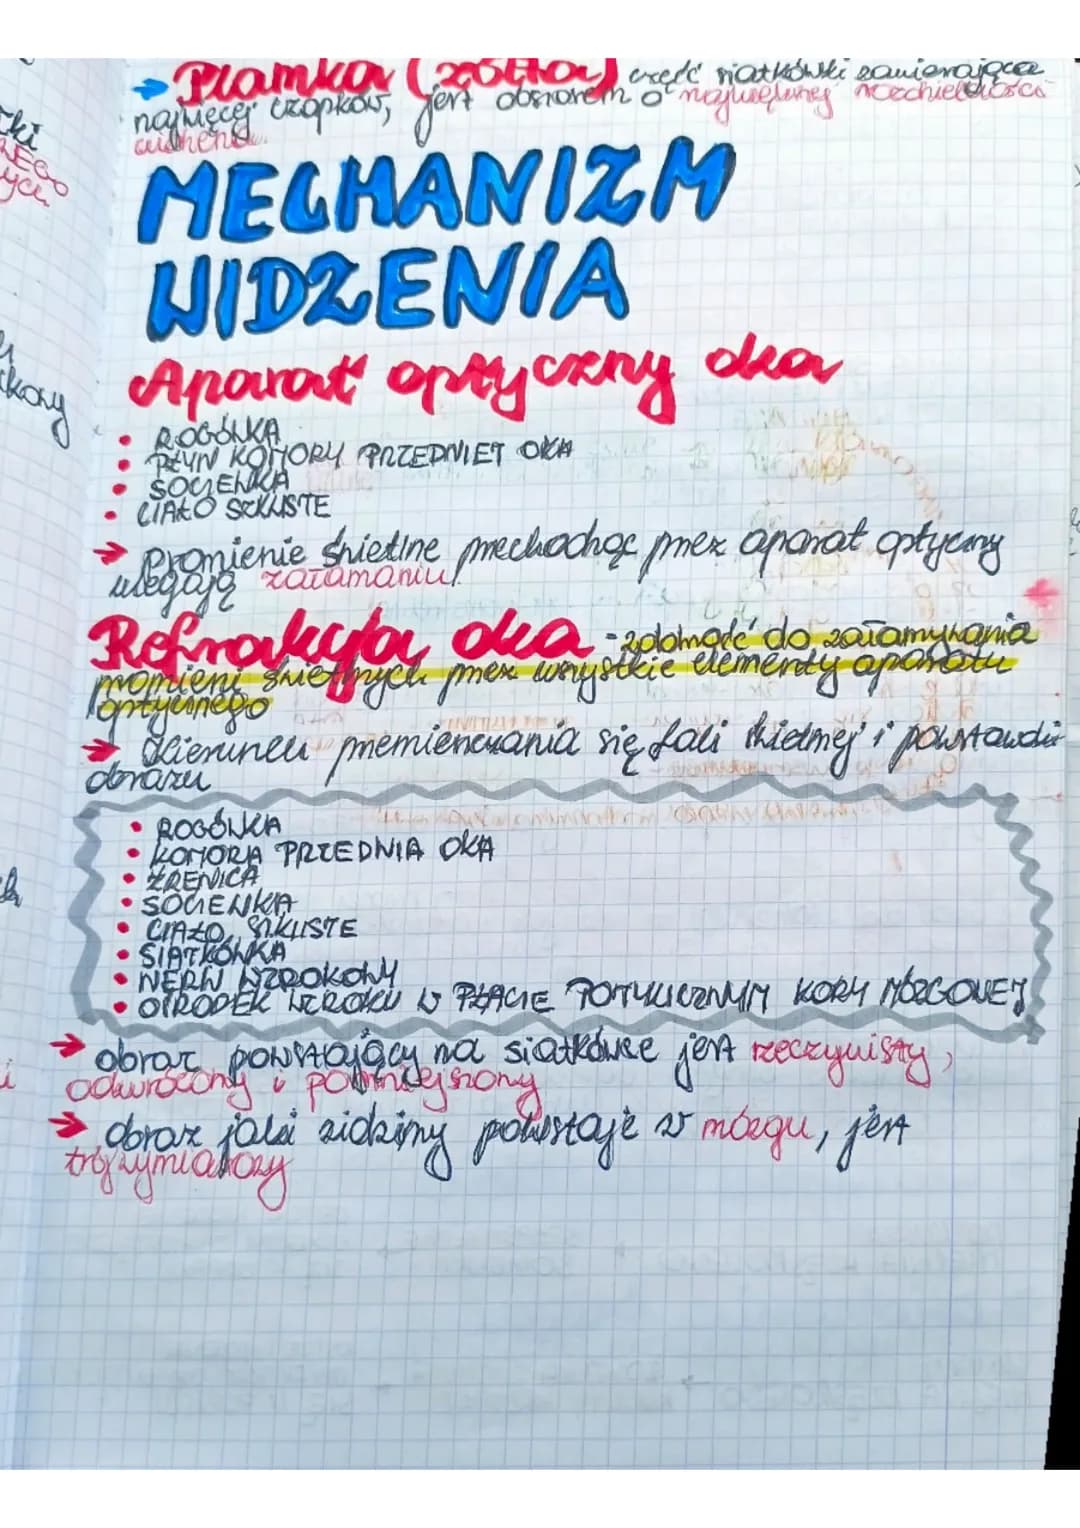 → Plamka (żółta) część siatkówki zawierająca
najwięcej czopków, jest obszarem o największej rozdzielczości
widzenia.
MECHANIZM
WIDZENIA
Aparat optyczny oka
• ROGÓWKA
• PŁYN KOMORY PRZEDNIEJ OKA
• SOCZEWKA
• CIAŁO SZKLISTE
→ promienie świetlne przechodząc przez aparat optyczny
ulegają załamaniu.
Refrakcja oka - zdolność do załamywania
promieni świetlnych przez wszystkie elementy aparatu
optycznego
→ Kierunek przemieszczania się fali świetlnej i powstawania
obrazu
• ROGÓWKA
• KOMORA PRZEDNIA OKA
• ŹRENICA
• SOCZEWKA
• CIAŁO SZKLISTE
• SIATKÓWKA
• NERW WZROKOWY
• OŚRODEK WZROKU W PŁACIE POTYLICZNYM KORY MÓZGOWEJ
→ obraz powstający na siatkówce jest rzeczywisty,
odwrócony i pomniejszony
→ obraz jaki widzimy powstaje w mózgu, jest
trójwymiarowy